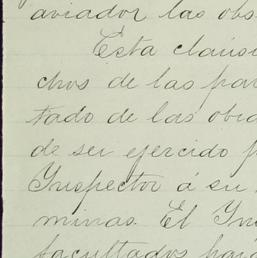 aviador las obs
Esta cláusu
chos de las par
tado de las obra
de ser ejercido p
Inspector á su
minas. El Ins
facultados para